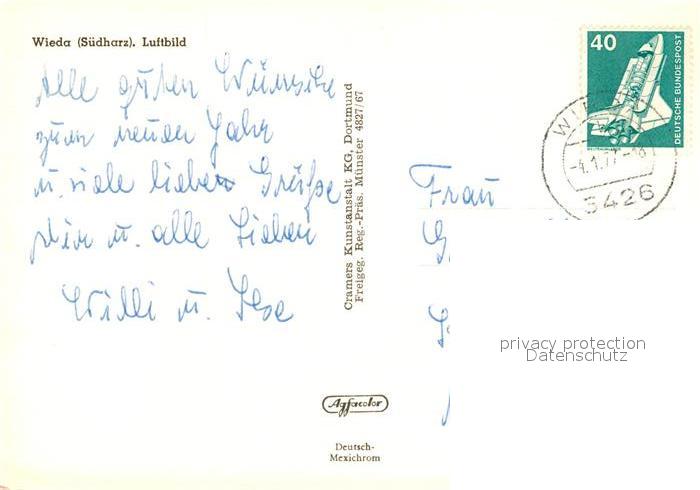 Wieda (Südharz). Luftbild
Alle guten Wünsche
zum neuen Jahr
u. viele lieben Grüße
Dir u. alle Lieben
Willi u. Ilse
Cramers Kunstanstalt KG, Dortmund
Freigeg. Reg.-Präs. Münster 4827/67
40
DEUTSCHE BUNDESPOST
WI
-4.1.77-18
3426
Frau
G
privacy protection
Datenschutz
Agfacolor
Deutsch-
Mexichrom